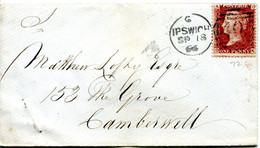 C
IPSWICH
SP 18
66
ONE PENNY
Matthew Lofty Esqre
153 The Grove
Camberwell